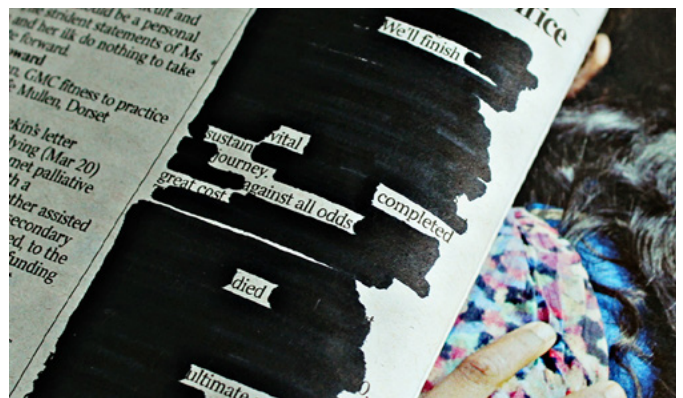 cult and
ould be a personal
strident statements of Ms
and her ilk do nothing to take
forward.
GMC fitness to practice
Mullen, Dorset
kin's letter
ying (Mar 20)
met palliative
h a
ther assisted
secondary
ed, to the
funding
We'll finish
sustain vital
journey.
great cost against all odds completed
died
ultimate